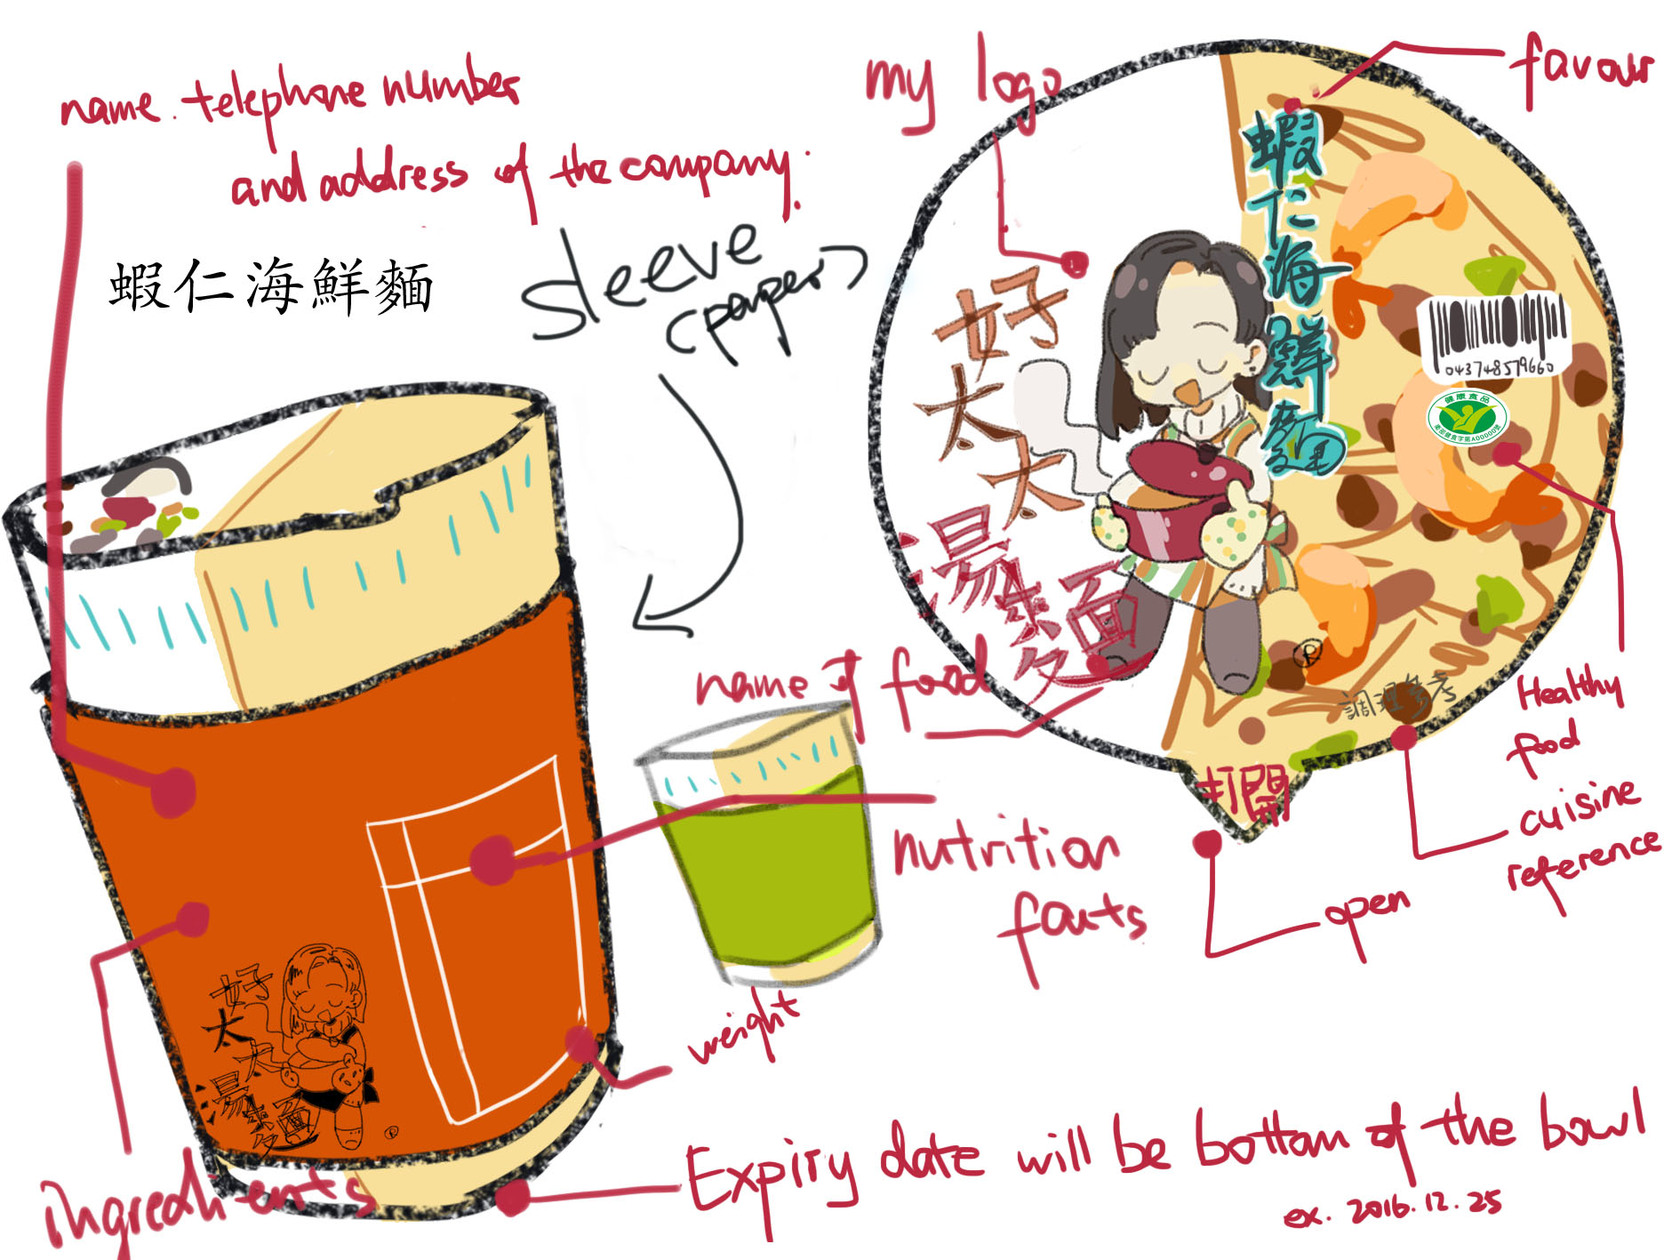 name. telephone number
and address of the company.
蝦仁海鮮麵
sleeve
(paper)
my logo
favour
蝦仁海鮮麵
好太太
湯麵
043748579660
健康食品
調理參考
®
打開
name of food
nutrition
farts
Healthy
food
cuisine
reference
open
weight
好太太
湯麵
®
ingredients
Expiry date will be bottom of the bowl
ex. 2016.12.25